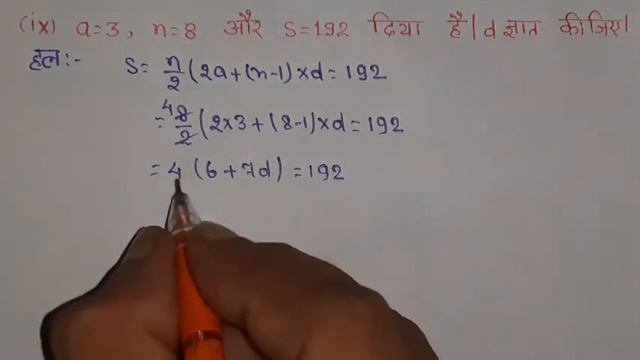 (ix) a=3, n=8 और S=192 दिया है। d ज्ञात कीजिए।
हल:- S= n/2 (2a+(n-1)×d=192
= 4 8/2 (2×3+(8-1)×d=192
= 4 (6+7d) =192